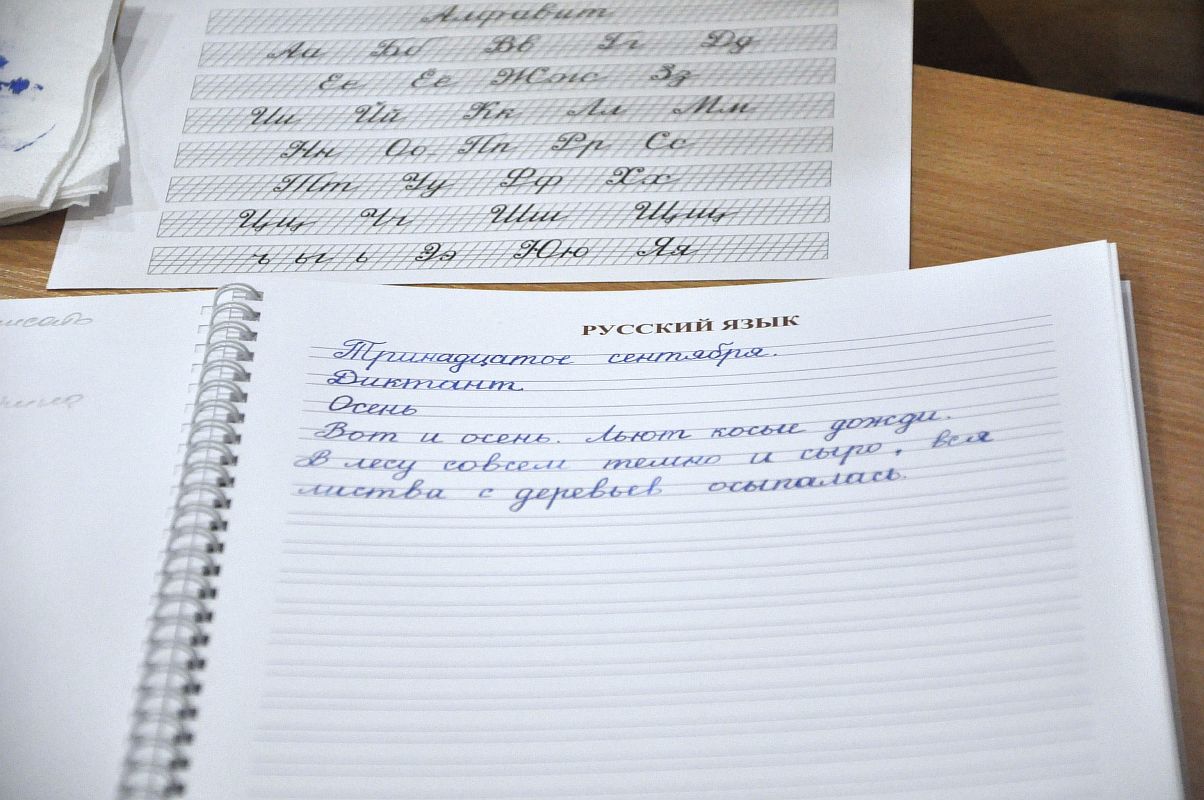 Алфавит
Аа Бб Вв Гг Дд
Ее Ее Жж Зз
Ии Йй Кк Лл Мм
Нн Оо Пп Рр Сс
Тт Уу Фф Хх
Цц Чч Шш Щщ
ъ ы ь Ээ Юю Яя
РУССКИЙ ЯЗЫК
Тринадцатое сентября.
Диктант.
Осень
Вот и осень. Льют косые дожди.
В лесу совсем темно и сыро, вся
листва с деревьев осыпалась.